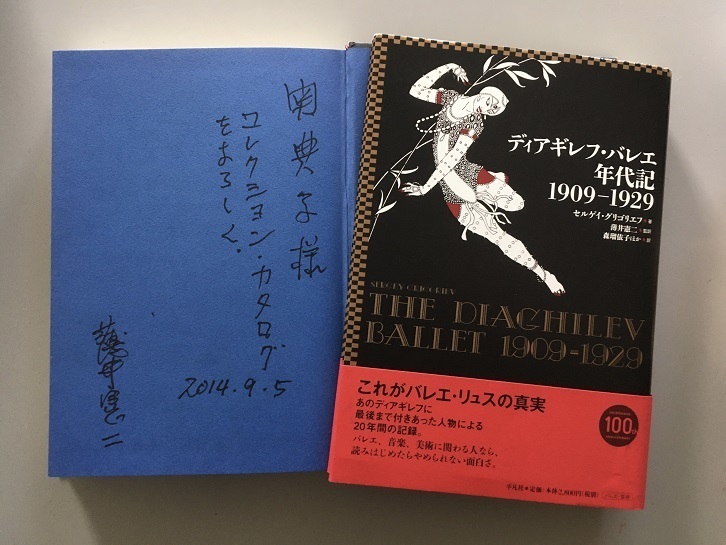 関典子様
コレクション・カタログ
をよろしく.
2014.9.5
薄井憲二
ディアギレフ・バレエ
年代記
1909-1929
セルゲイ・グリゴリエフ 著
薄井憲二 監訳
森瑠依子ほか 訳
SERGEY GRIGORIEV
THE DIAGHILEV
BALLET 1909-1929
これがバレエ・リュスの真実
あのディアギレフに
最後まで付きあった人物による
20年間の記録。
バレエ、音楽、美術に関わる人なら、
読みはじめたらやめられない面白さ。
100th
平凡社●定価:本体2,800円(税別)